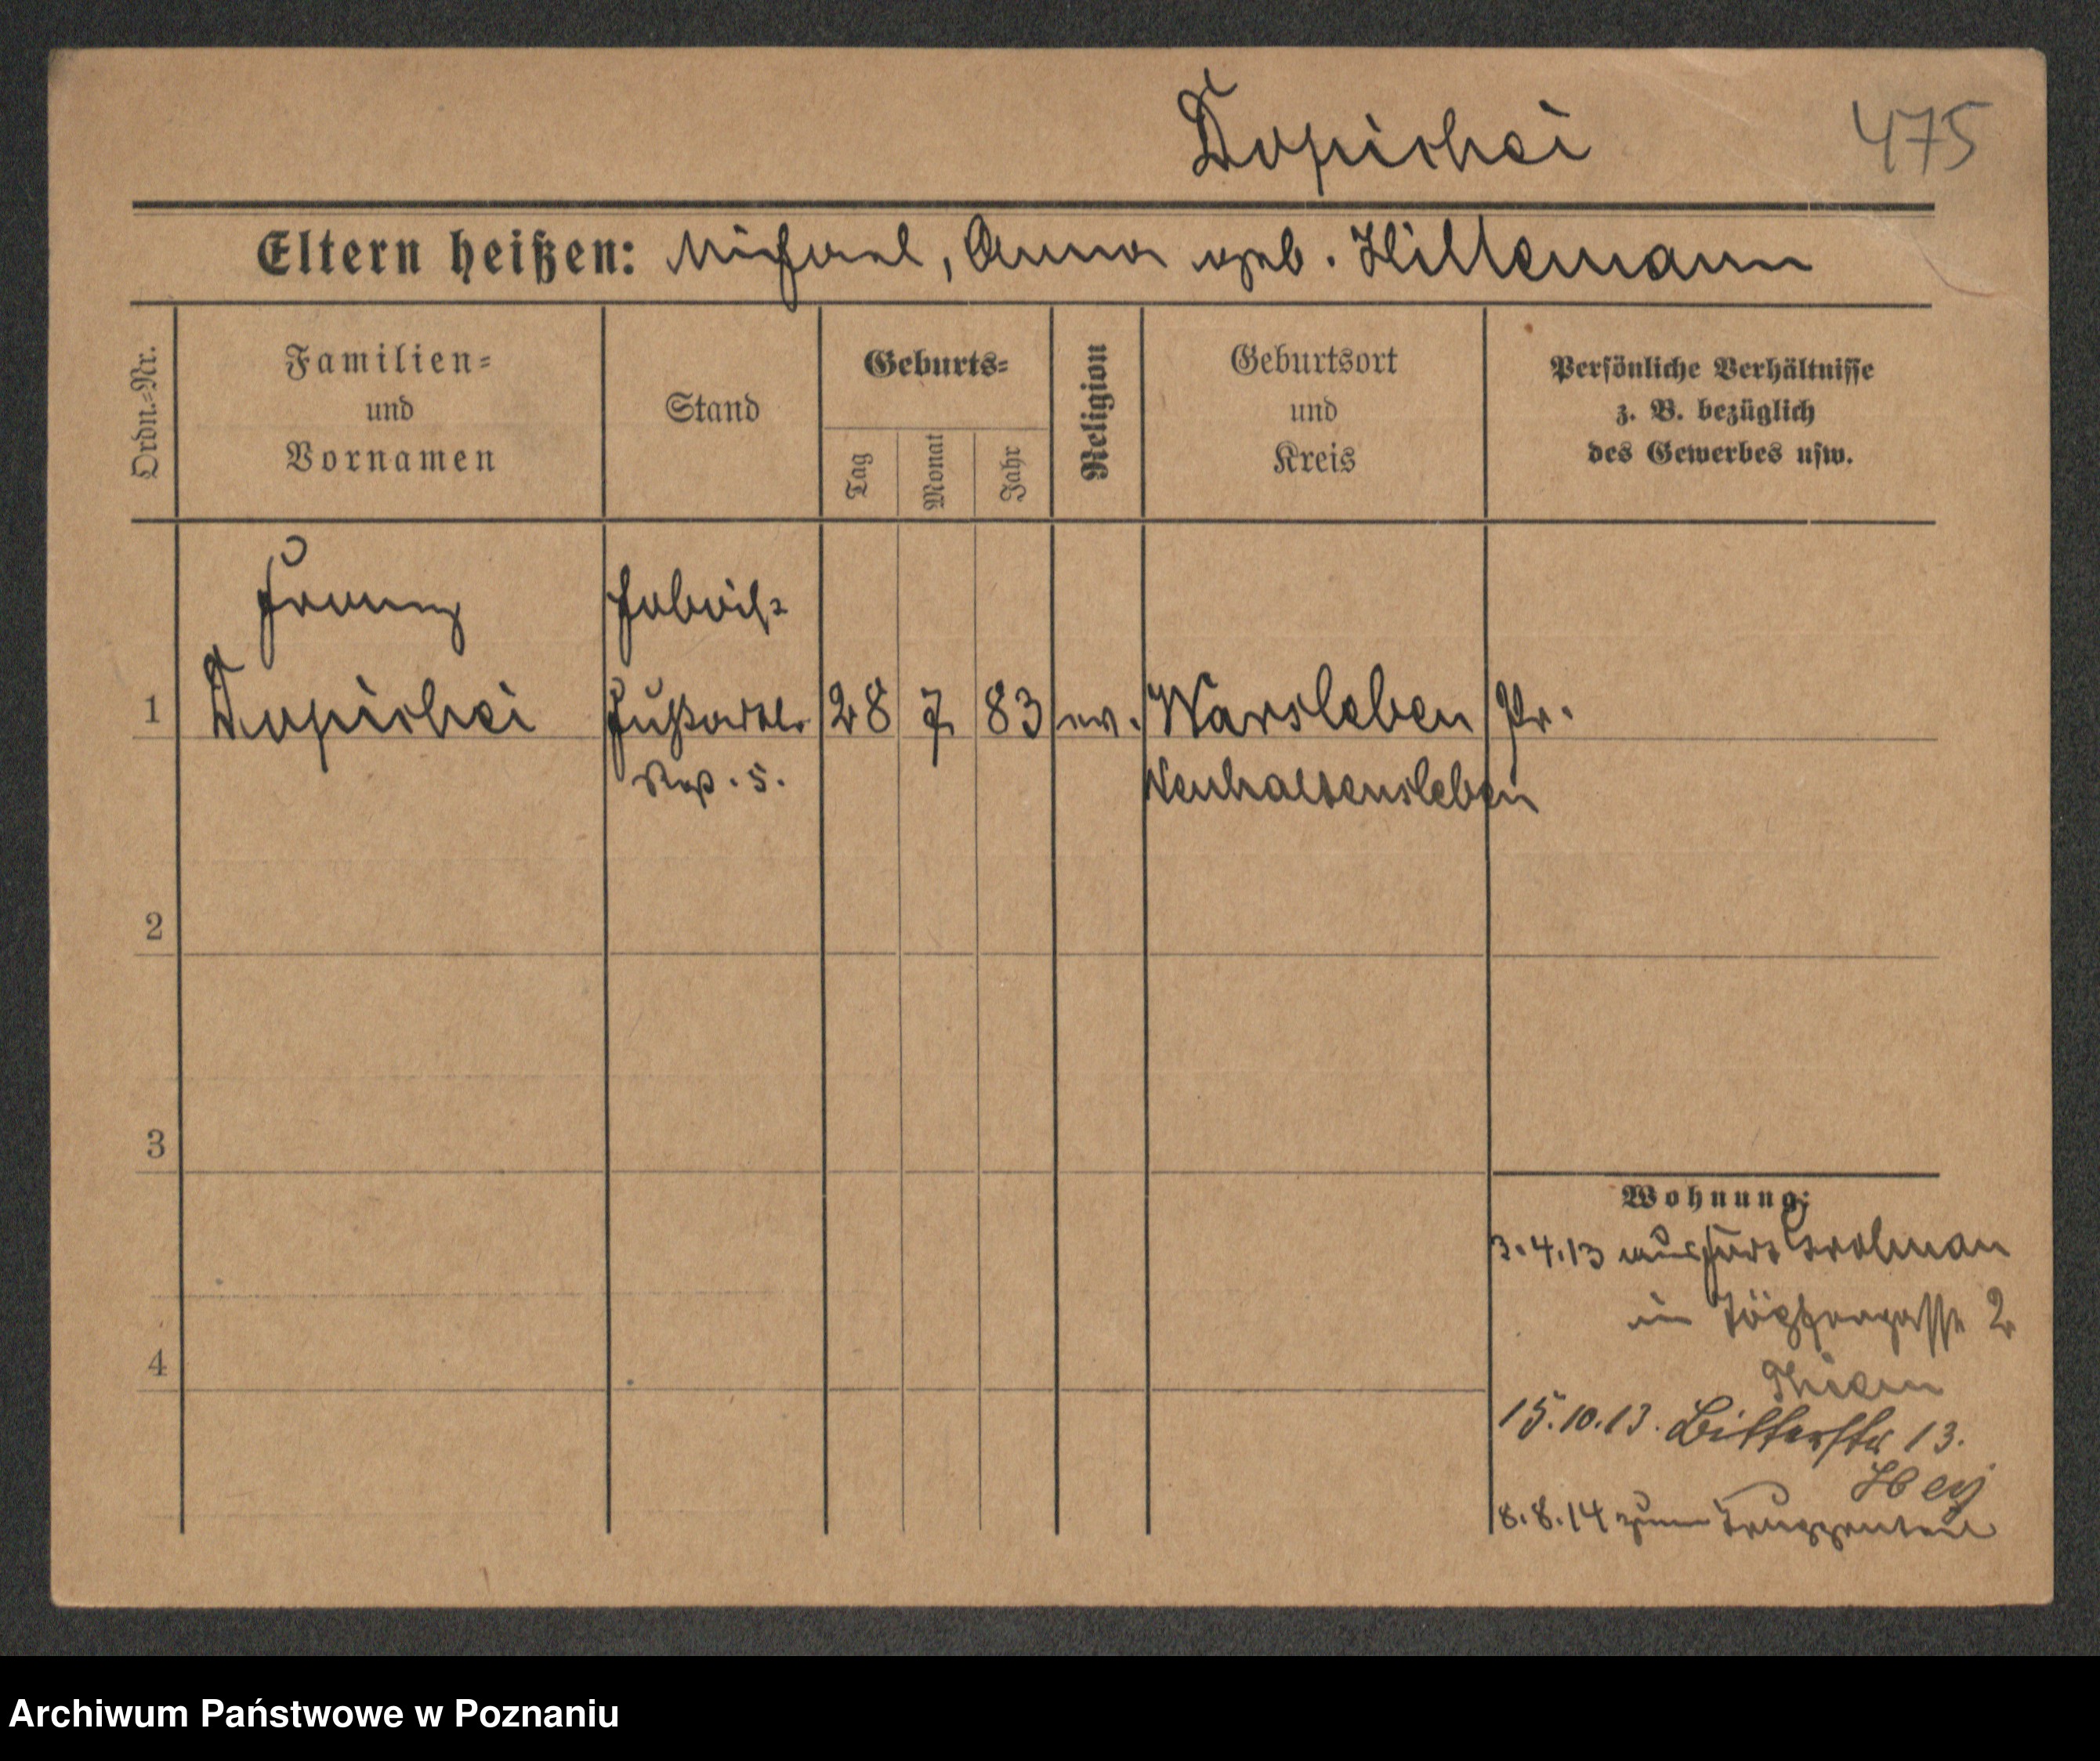 Dopichei 475
Eltern heißen: Michael, Anna geb. Hillemann
Ordn.-Nr.
Familien-
und
Vornamen
Stand
Geburts-
Tag
Monat
Jahr
Religion
Geburtsort
und
Kreis
Persönliche Verhältnisse
z. B. bezüglich
des Gewerbes usw.
Franz
1 Dopichei 28 7 83 ev. Warsleben Pr.
Reg. 5. Neuhaldensleben
2
3
4
Wohnung:
3.4.13 Grolman
in 2
Thiem
15.10.13. Bitterstr 13.
Hey
8.8.14 zum Truppenteil
Archiwum Państwowe w Poznaniu